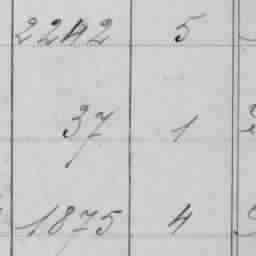 2242 5
37 1
1875 4